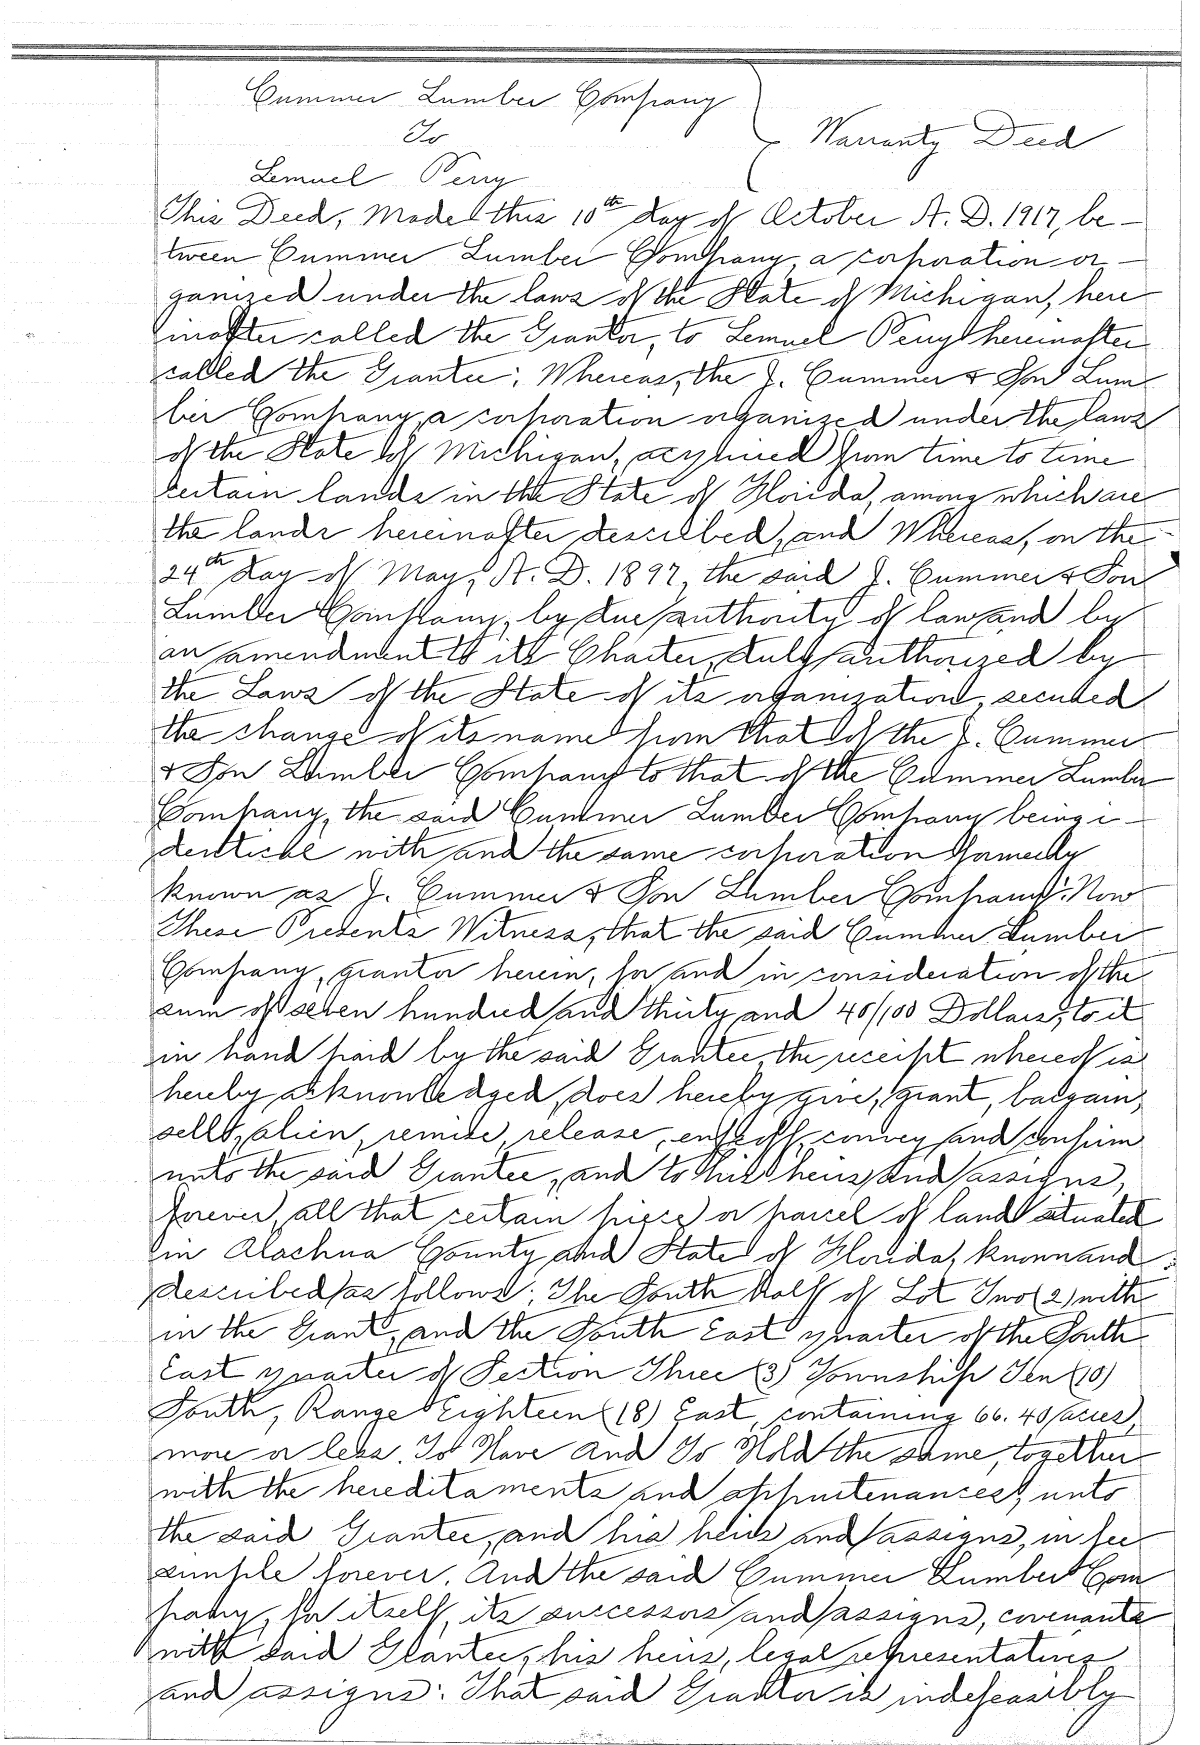 Cummer Lumber Company
To
Warranty Deed
Lemuel Perry
This Deed, Made this 10th day of October A. D. 1917, be-
tween Cummer Lumber Company, a corporation or-
ganized under the laws of the State of Michigan, here
inafter called the Grantor, to Lemuel Perry hereinafter
called the Grantee; Whereas, the J. Cummer & Son Lum
ber Company, a corporation organized under the laws
of the State of Michigan, acquired from time to time
certain lands in the State of Florida, among which are
the lands hereinafter described, and Whereas, on the
24th day of May, A. D. 1897, the said J. Cummer & Son
Lumber Company, by due authority of law and by
an amendment to its Charter, duly authorized by
the Laws of the State of its organization, secured
the change of its name from that of the J. Cummer
& Son Lumber Company to that of the Cummer Lumber
Company, the said Cummer Lumber Company being i-
dentical with and the same corporation formerly
known as J. Cummer & Son Lumber Company: Now
These Presents Witness, that the said Cummer Lumber
Company, grantor herein, for and in consideration of the
sum of seven hundred and thirty and 40/100 Dollars, to it
in hand paid by the said Grantee, the receipt whereof is
hereby acknowledged, does hereby give, grant, bargain,
sells, alien, remise, release, enfeoff, convey and confirm
unto the said Grantee, and to his heirs and assigns,
forever, all that certain piece or parcel of land situated
in Alachua County and State of Florida, known and
described as follows: The South Half of Lot Two (2) with
in the Grant, and the South East quarter of the South
East quarter of Section Three (3) Township Ten (10)
South, Range Eighteen (18) East, containing 66.40 acres,
more or less. To Have and To Hold the same, together
with the hereditaments and appurtenances, unto
the said Grantee, and his heirs and assigns, in fee
simple forever. And the said Cummer Lumber Com
pany, for itself, its successors and assigns, covenants
with said Grantee, his heirs, legal representatives
and assigns: That said Grantor is indefeasibly